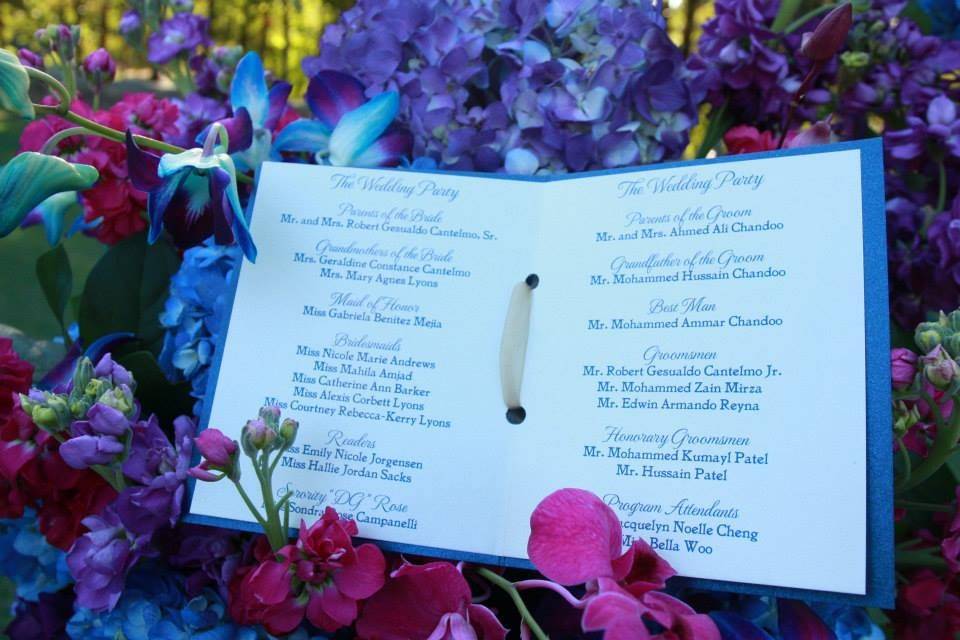 The Wedding Party
Parents of the Bride
Mr. and Mrs. Robert Gesualdo Cantelmo, Sr.
Grandmothers of the Bride
Mrs. Geraldine Constance Cantelmo
Mrs. Mary Agnes Lyons
Maid of Honor
Miss Gabriela Benitez Mejia
Bridesmaids
Miss Nicole Marie Andrews
Miss Mahila Amjad
Miss Catherine Ann Barker
Miss Alexis Corbett Lyons
Miss Courtney Rebecca-Kerry Lyons
Readers
Miss Emily Nicole Jorgensen
Miss Hallie Jordan Sacks
Sorority "DG" Rose
Sondra Rose Campanelli
The Wedding Party
Parents of the Groom
Mr. and Mrs. Ahmed Ali Chandoo
Grandfather of the Groom
Mr. Mohammed Hussain Chandoo
Best Man
Mr. Mohammed Ammar Chandoo
Groomsmen
Mr. Robert Gesualdo Cantelmo Jr.
Mr. Mohammed Zain Mirza
Mr. Edwin Armando Reyna
Honorary Groomsmen
Mr. Mohammed Kumayl Patel
Mr. Hussain Patel
Program Attendants
Jacquelyn Noelle Cheng
Miss Bella Woo